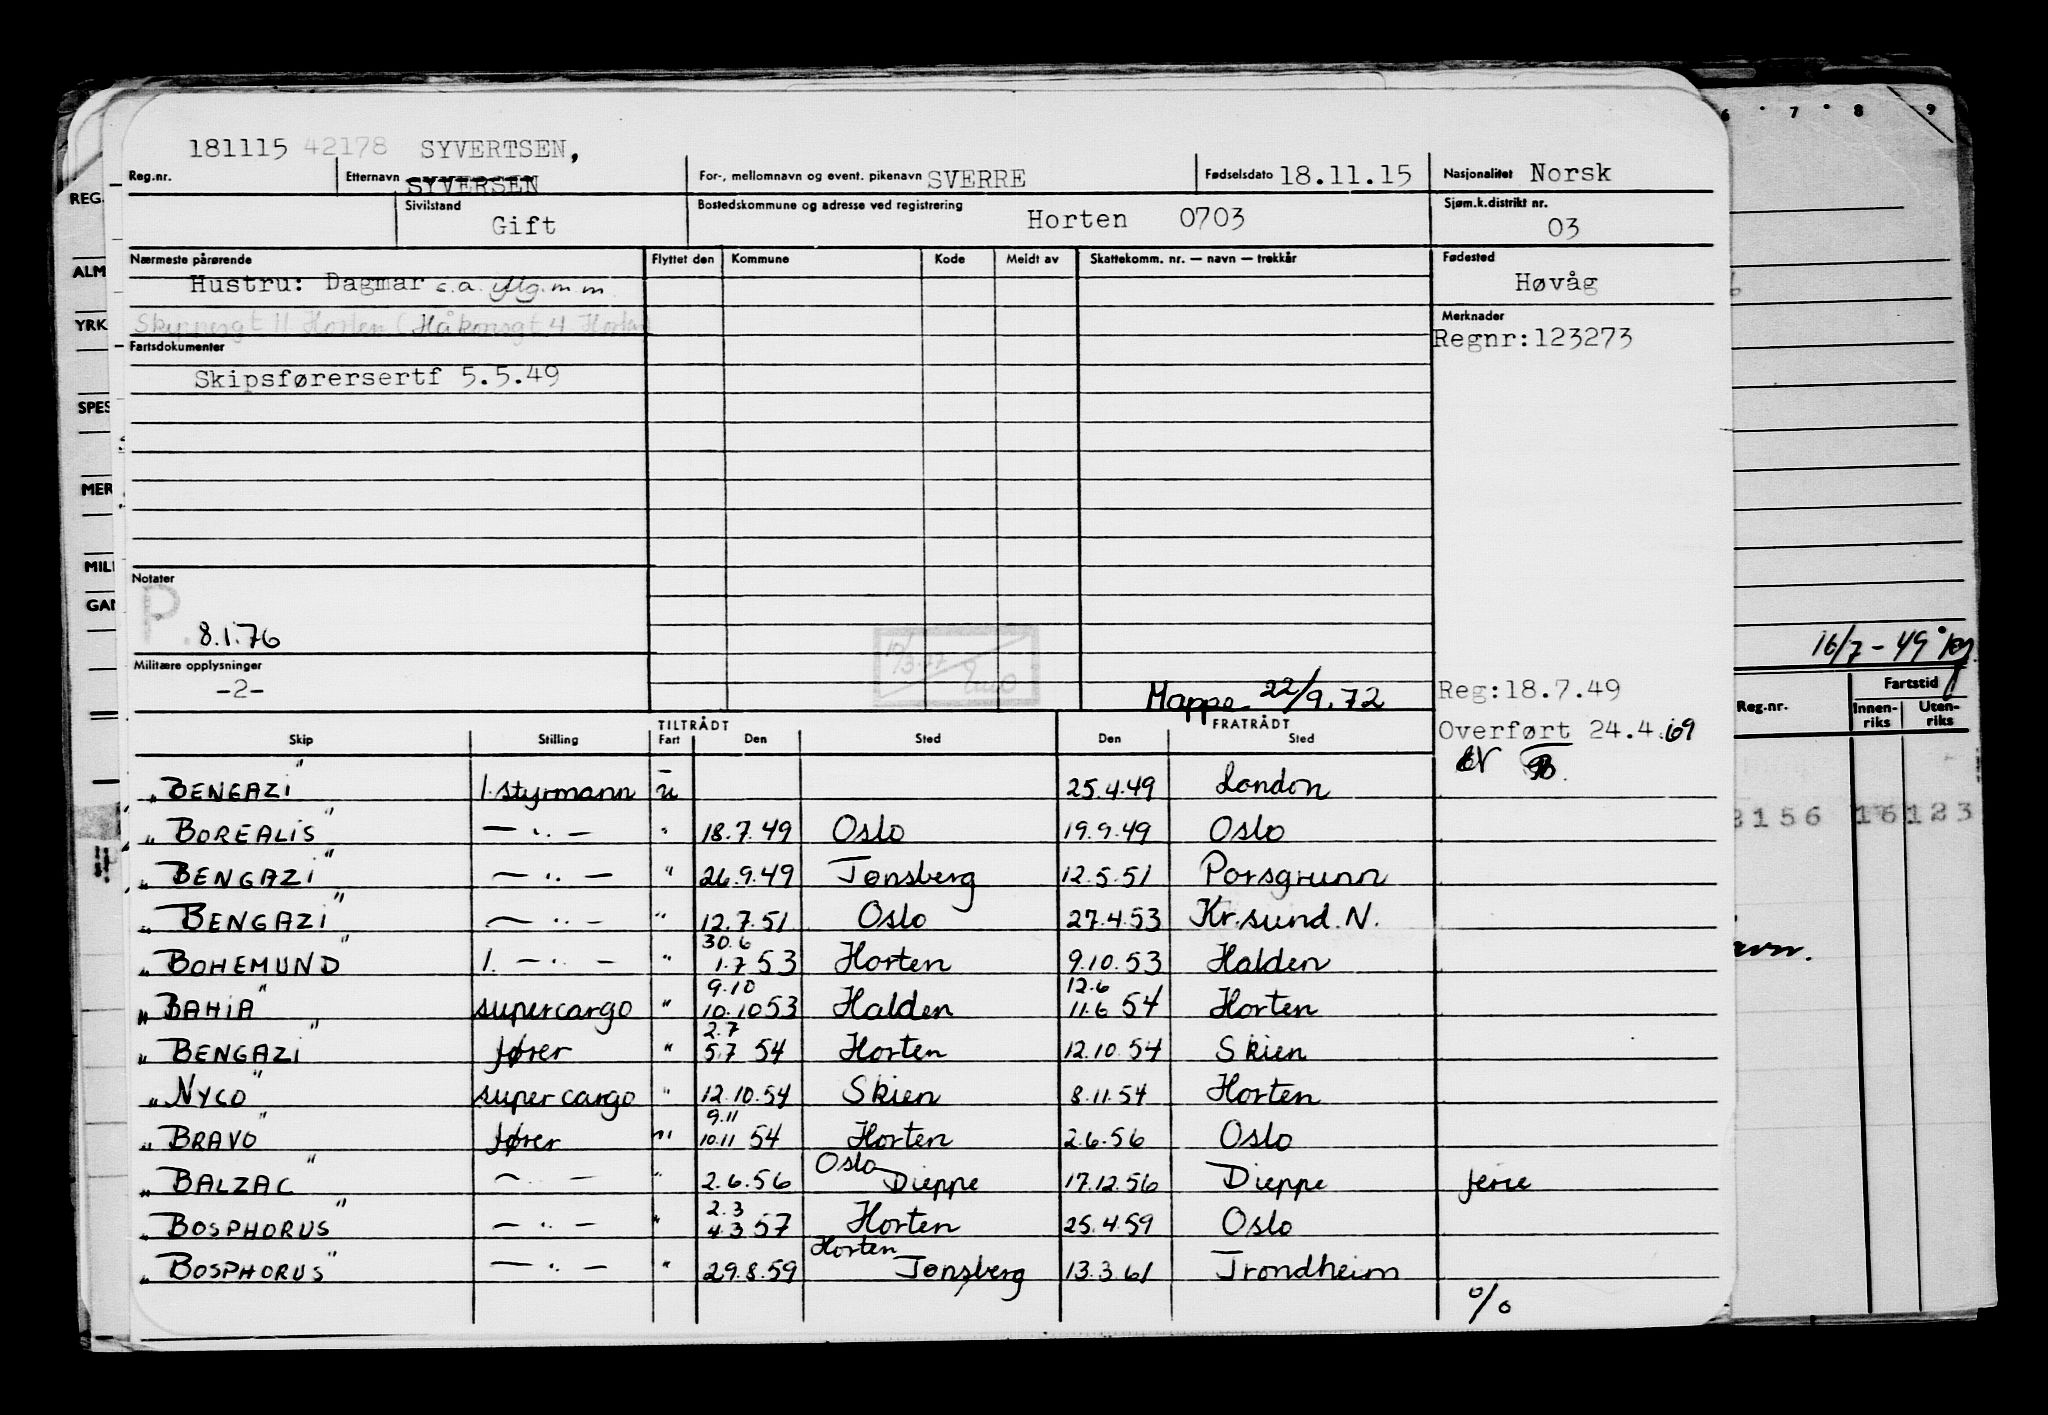 181115 42178 SYVERTSEN,
Reg.nr. Etternavn SYVERSEN For-, mellomnavn og event. pikenavn SVERRE Fødselsdato 18.11.15 Nasjonalitet Norsk
Sivilstand Gift Bostedskommune og adresse ved registrering Horten 0703 Sjøm.k.distrikt nr. 03
Nærmeste pårørende Flyttet den Kommune Kode Meldt av Skattekomm. nr. — navn — trekkår Fødested
Hustru: Dagmar s.a. Høvåg
Skippergt 11 Horten (Håkonsgt 4 Horten
Merknader
Regnr:123273
Fartsdokumenter
Skipsførersertf 5.5.49
Notater
P.
8.1.76
Militære opplysninger
-2-
Mappe 22/9.72
Reg:18.7.49
Overført 24.4.69
TILTRÅDT FRATRÅDT
Skip Stilling Fart Den Sted Den Sted
„BENGAZI" 1. styrmann u 25.4.49 London
„BOREALIS" — „ — " 18.7.49 Oslo 19.9.49 Oslo
„BENGAZI" — „ — " 26.9.49 Tønsberg 12.5.51 Porsgrunn
„BENGAZI" — „ — " 12.7.51 Oslo 27.4.53 Kr.sund. N.
30.6
„BOHEMUND" 1. — „ — " 1.7 53 Horten 9.10.53 Halden
9.10 12.6
„BAHIA" supercargo " 10.10 53 Halden 11.6 54 Horten
2.7
„BENGAZI" fører " 5.7 54 Horten 12.10.54 Skien
„NYCO" supercargo " 12.10.54 Skien 8.11.54 Horten
9.11
„BRAVO" fører " 10.11 54 Horten 2.6.56 Oslo
„BALZAC" — „ — " 2.6.56 Oslo Dieppe 17.12.56 Dieppe ferie
2.3
„BOSPHORUS" — „ — " 4.3 57 Horten 25.4.59 Oslo
„BOSPHORUS" — „ — " 29.8.59 Horten Tønsberg 13.3.61 Trondheim
o/o
REG.
ALM
YRK
SPES
MER
MILI
GAN
6 7 8 9
16/7 - 49
Reg.nr. Fartstid
Innen-riks Uten-riks
2156 16123
avn.